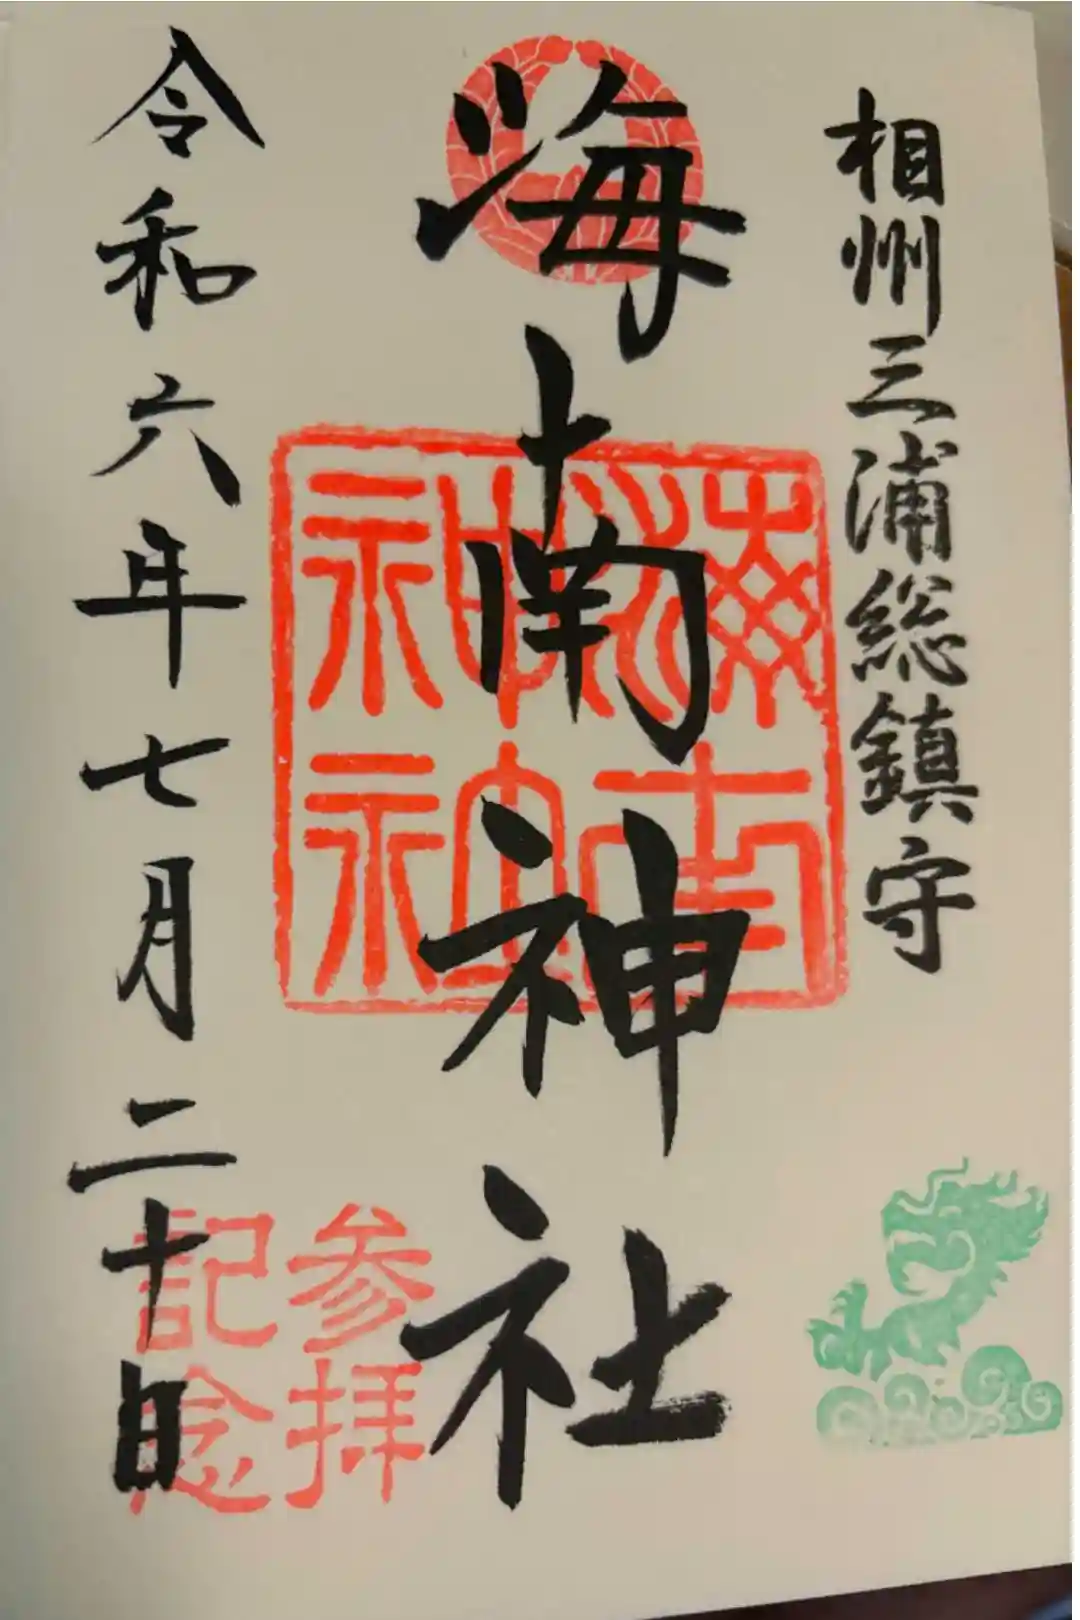 相州三浦総鎮守
海南神社
海南神社
令和六年七月二十日
参拝
記念